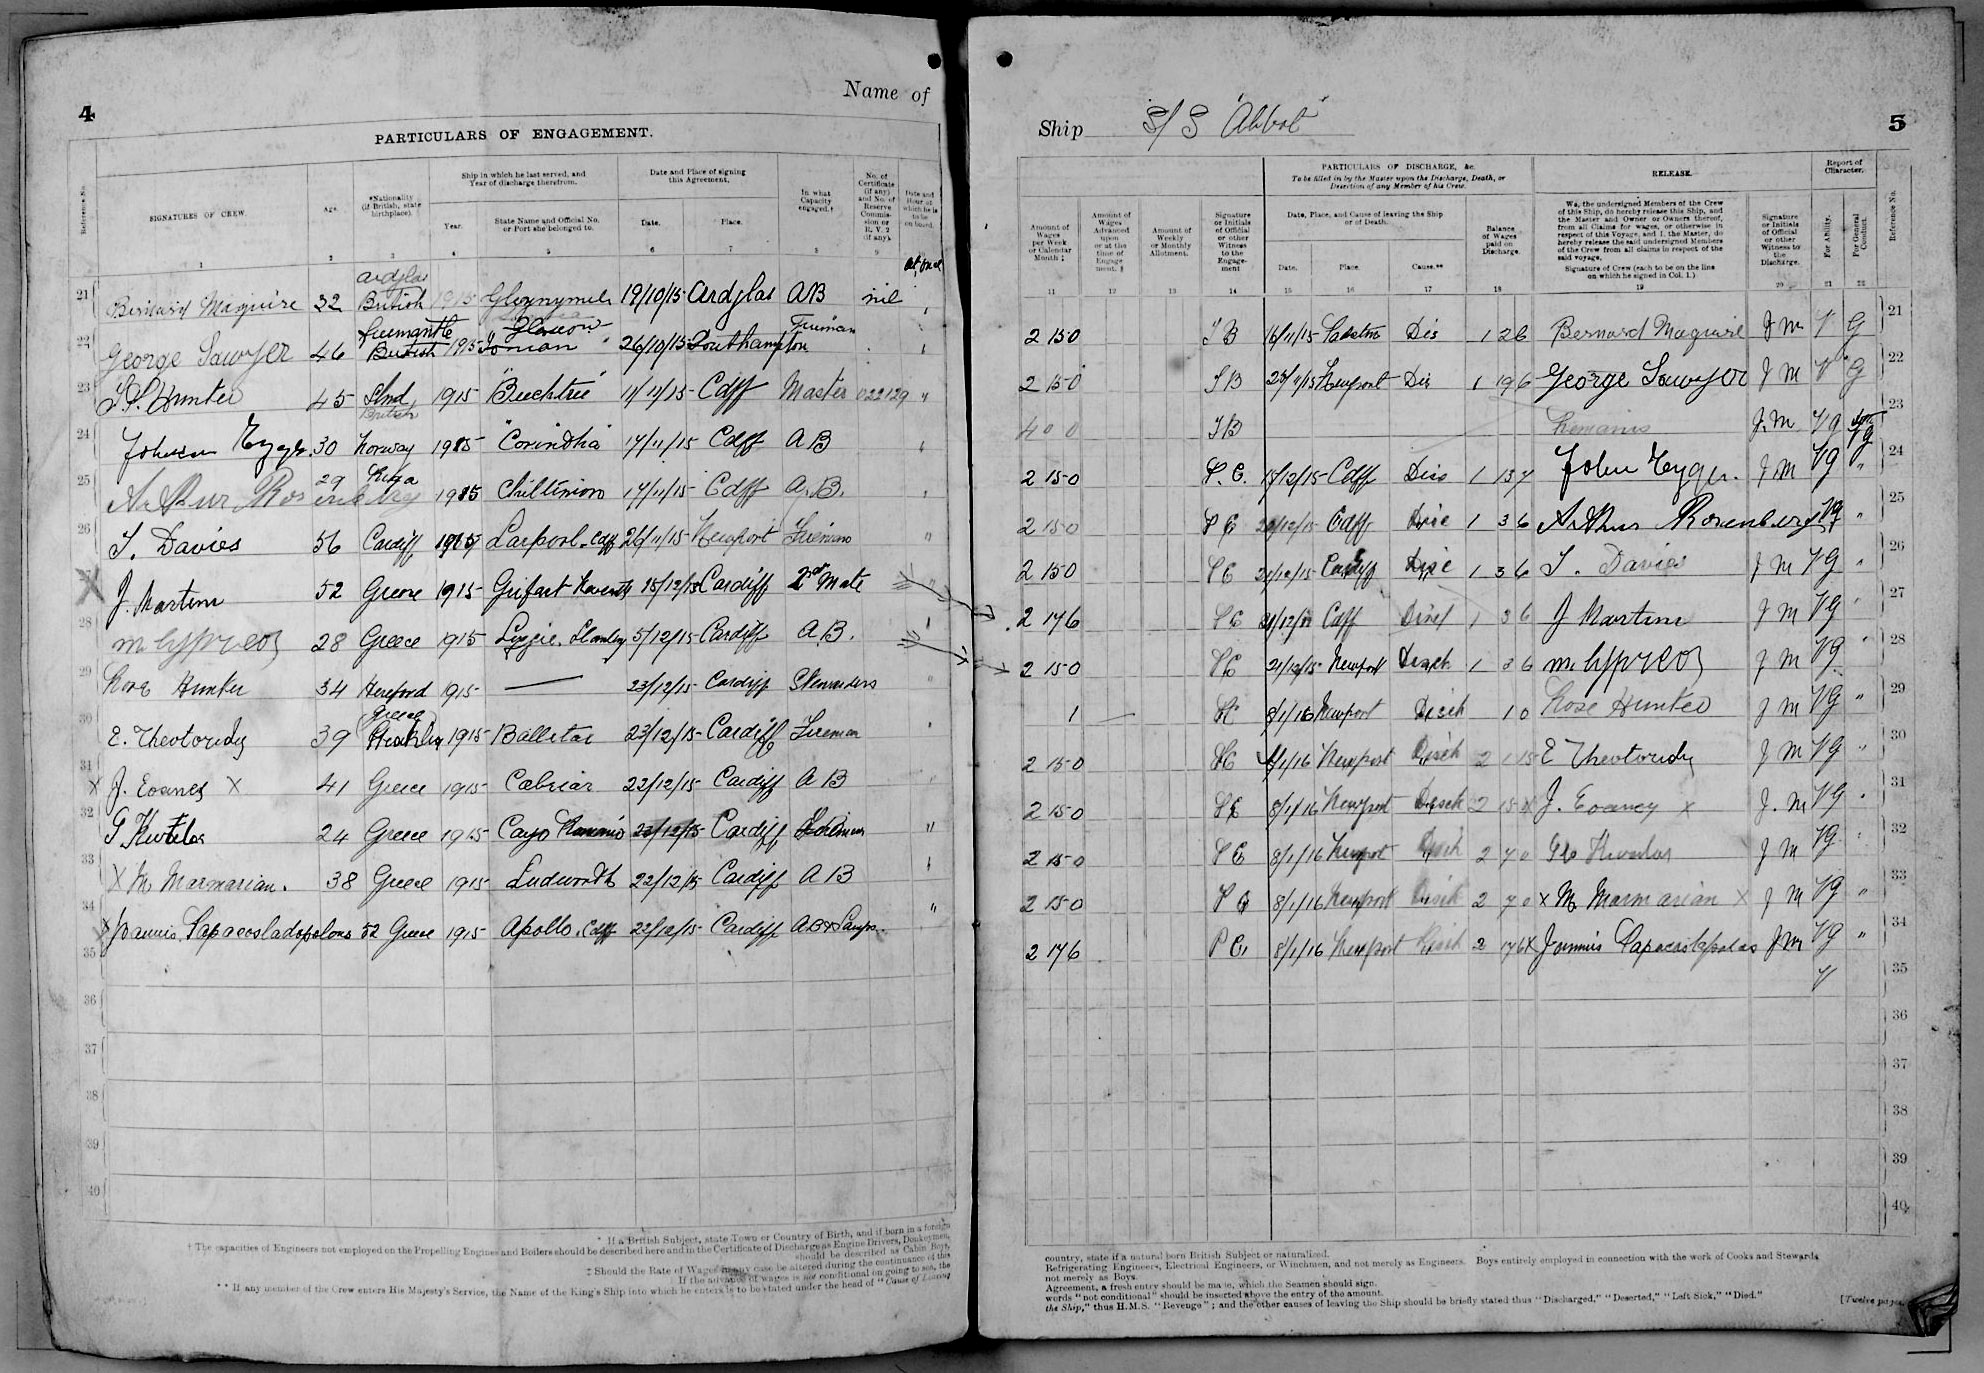 4
Name of
PARTICULARS OF ENGAGEMENT.
Reference No.
SIGNATURES OF CREW.
Age.
*Nationality (if British, state birthplace).
Ship in which he last served, and Year of discharge therefrom.
Year.
State Name and Official No. or Port she belonged to.
Date and Place of signing this Agreement.
Date.
Place.
In what Capacity engaged.†
No. of Certificate (if any) and No. of Reserve Commission or R.V. 2 (if any).
Date and Hour at which he is to be on board.
1 2 3 4 5 6 7 8 9
at once
21 Bernard Maguire 32 Ardglas British 1915 19/10/15 Ardglas AB nil
22 George Sawyer 46 Freemantle British 1915 Ionian Glascow 26/10/15 Southampton Fireman
23 Hunter 45 British 1915 "Beechtree" 11/11/15 Cdff Master 022129 "
24 Johnson 30 Norway 1915 "Corinthia" 17/11/15 Cdff AB
25 Arthur Rosenberg 29 Riga 1915 Chilternion 17/11/15 Cdff A.B.
26 T. Davies 56 Cardiff 1915 Larpool Cdff 26/11/15 Newport Fireman "
27 J. Martin 52 Greece 1915 15/12/15 Cardiff 2nd Mate
28 28 Greece 1915 Lizzie 5/12/15 Cardiff AB.
29 Rose Hunter 34 Hereford 1915 — 23/12/15 Cardiff Stewardess
30 E. Theotoridy 39 Greece 1915 Ballater 23/12/15 Cardiff Fireman
31 X J. Eoaney X 41 Greece 1915 Cabriar 22/12/15 Cardiff AB
32 24 Greece 1915 Cayo 22/12/15 Cardiff Fireman "
33 X M. Marmarian. 38 Greece 1915 Ludworth 22/12/15 Cardiff AB
34 X 52 Greece 1915 Apollo. Cdff 22/12/15 Cardiff AB & Lamps. "
35
36
37
38
39
40
* If a British Subject, state Town or Country of Birth, and if born in a foreign
† The capacities of Engineers not employed on the Propelling Engines and Boilers should be described here and in the Certificate of Discharge as Engine Drivers, Donkeymen,
should be described as Cabin Boys,
‡ Should the Rate of Wages in any case be altered during the continuance of this
If the advance of wages is not conditional on going to sea, the
** If any member of the Crew enters His Majesty's Service, the Name of the King's Ship into which he enters is to be stated under the head of "Cause of Leaving
Ship S/S "Abbot"
5
PARTICULARS OF DISCHARGE, &c.
To be filled in by the Master upon the Discharge, Death, or Desertion of any Member of his Crew.
RELEASE.
Report of Character.
Reference No.
Amount of Wages per Week or Calendar Month ‡
Amount of Wages Advanced upon or at the time of Engagement. §
Amount of Weekly or Monthly Allotment.
Signature or Initials of Official or other Witness to the Engagement
Date, Place, and Cause of leaving the Ship or of Death.
Date.
Place.
Cause.**
Balance of Wages paid on Discharge.
We, the undersigned Members of the Crew of this Ship, do hereby release this Ship, and the Master and Owner or Owners thereof, from all Claims for wages, or otherwise in respect of this Voyage, and I, the Master, do hereby release the said undersigned Members of the Crew from all claims in respect of the said voyage.
Signature of Crew (each to be on the line on which he signed in Col. 1.)
Signature or Initials of Official or other Witness to the Discharge.
For Ability.
For General Conduct.
11 12 13 14 15 16 17 18 19 20 21 22
2 15 0 16/11/15 Dis 1 2 6 Bernard Maguire JM V G 21
2 15 0 23/11/15 Newport Dis 1 19 6 George Sawyer JM V G 22
4 0 0 Remains J.M VG VG 23
2 15 0 Cdff Dis 1 13 7 John JM VG " 24
2 15 0 Cdff Disc 1 3 6 Arthur Rosenberg VG " 25
2 15 0 Cardiff Disc 1 3 6 T. Davies JM VG " 26
2 17 6 Cdff 1 3 6 J Martin JM VG 27
2 15 0 21/12/15 Newport Disch 1 3 6 JM VG 28
1 — 8/1/16 Newport Disch 1 0 Rose Hunter JM VG " 29
2 15 0 8/1/16 Newport Disch E Theotoridy JM VG " 30
2 15 0 8/1/16 Newport Disch J. Eoaney X J.M VG 31
2 15 0 8/1/16 Newport Disch 2 7 0 JM VG 32
2 15 0 8/1/16 Newport Disch 2 7 0 X M Marmarian X JM VG " 33
2 17 6 8/1/16 Newport Disch 2 17 6 X JM VG " 34
35
36
37
38
39
40
country, state if a natural born British Subject or naturalized.
Refrigerating Engineers, Electrical Engineers, or Winchmen, and not merely as Engineers. Boys entirely employed in connection with the work of Cooks and Stewards
not merely as Boys.
Agreement, a fresh entry should be made, which the Seamen should sign.
words "not conditional" should be inserted above the entry of the amount.
the Ship," thus H.M.S. "Revenge"; and the other causes of leaving the Ship should be briefly stated thus "Discharged," "Deserted," "Left Sick," "Died."
[Twelve pages.